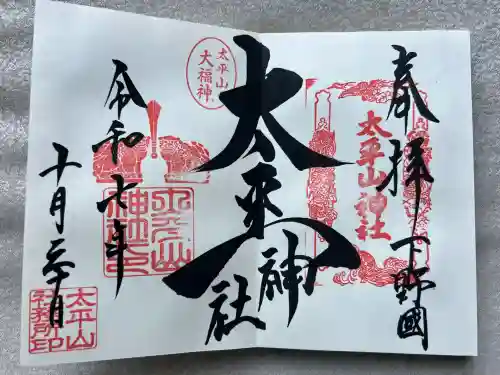 奉拝 下野國
太平山神社
太平山
大福神
太平神社
太平山
神社之印
令和七年
十月三十日
太平山
社務所印